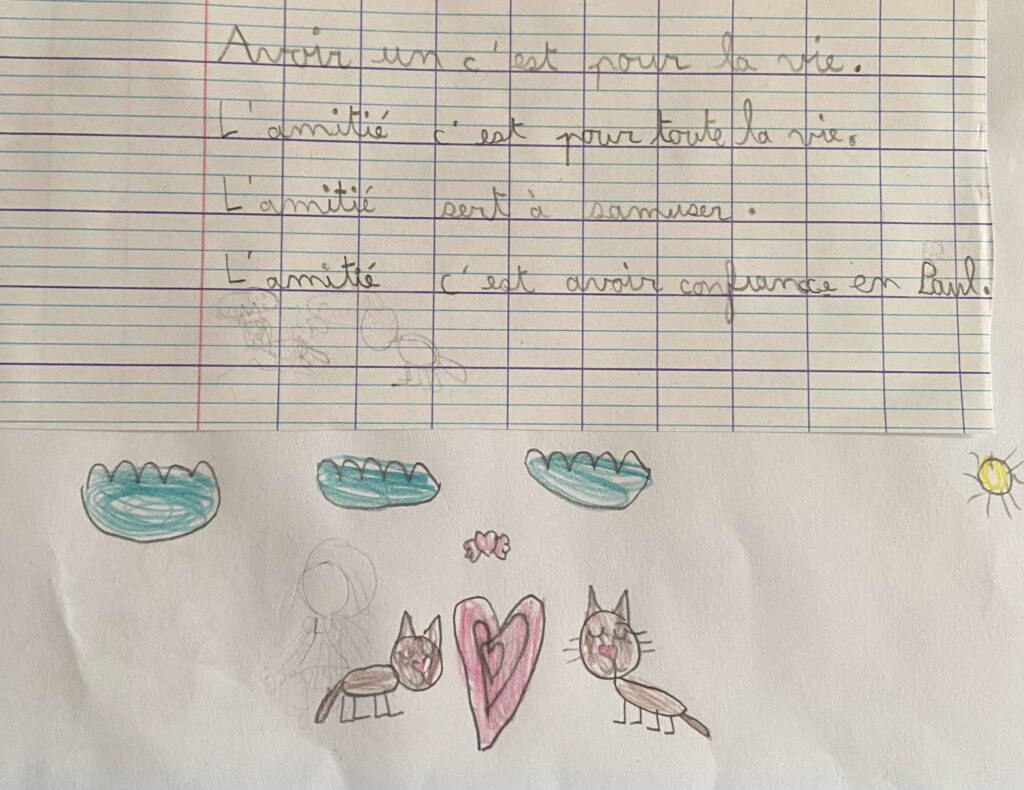 Avoir un c'est pour la vie.
L'amitié c'est pour toute la vie.
L'amitié sert à samuser.
L'amitié c'est avoir confiance en Paul.